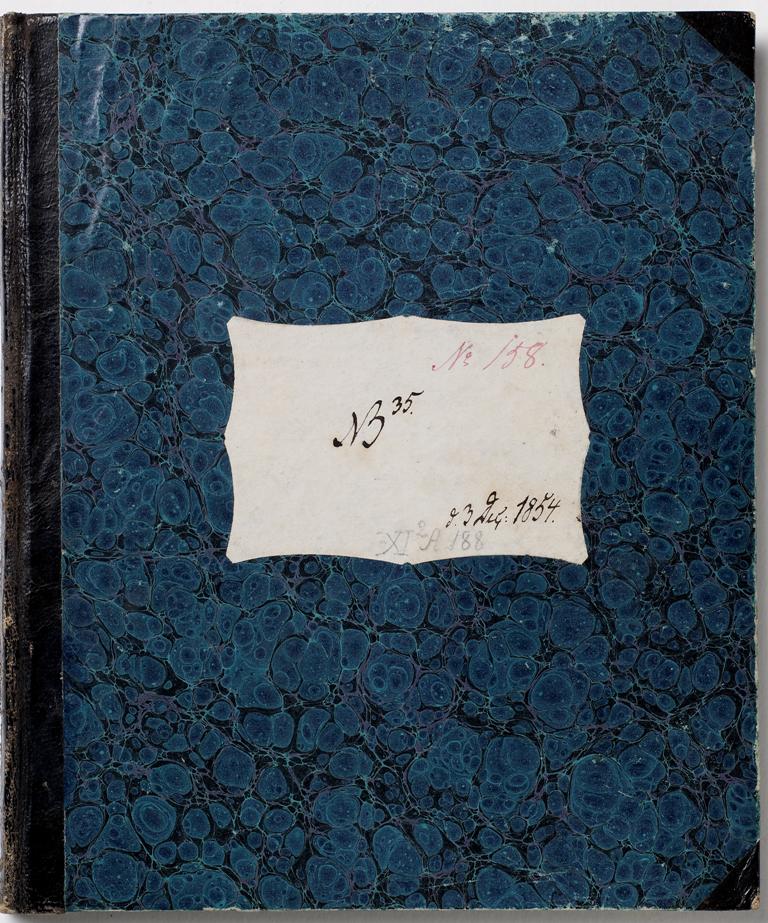 No 158.
NB 35.
d. 3 Dec: 1854.
XI² A 188